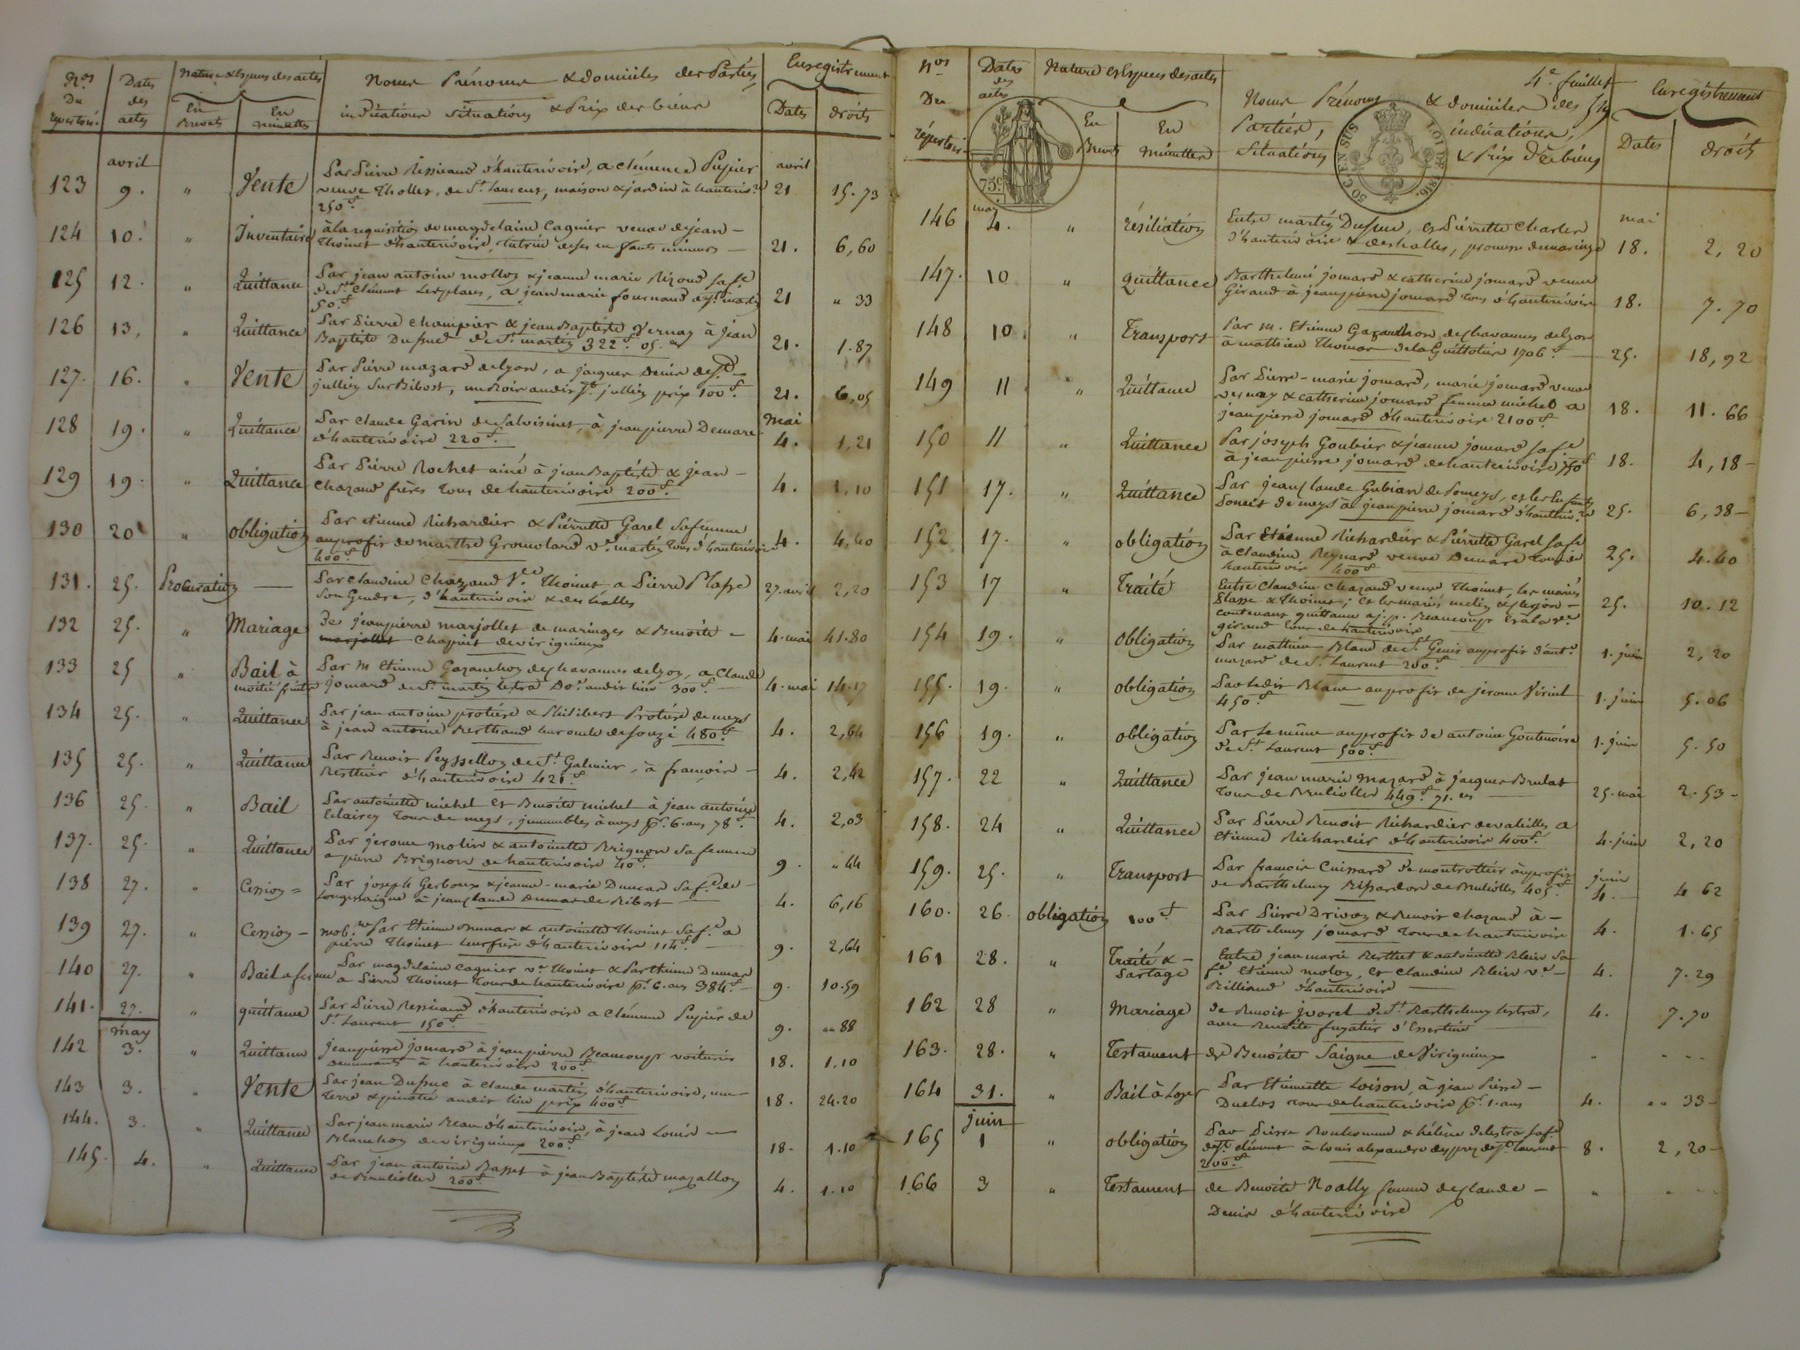 Nos Dates Nature & Espèces des actes Noms Prénoms & domiciles des Parties Enregistrement
Du des En En indications situations & Prix des biens Dates droits
Répertoire actes Brevets minuttes
avril avril
123 9. " Vente Par Pierre Ressicaud d'hauterivoire, a clémence Pupier
veuve Thollet, de St. Laurent, maison & jardin à hauteriv.re 21 15.73
250f
124 10. " Inventaire à la requisition de magdelaine Cagnier veuve de jean
Thoinet d'hauterivoire, tutrice de ses enfants mineurs 21. 6,60
125 12. " Quittance Par jean antoine mollon & jeanne marie
de St. Clément Les places, a jean marie fournand 21 " 33
50f
126 13. " Quittance Par Pierre Champier & jean Baptiste Vernay à Jean
Baptiste Dupuet de St. martin 322f. 05.c 21. 1.87
127. 16. " Vente Par Pierre mazard de lyon, a jacques Denis de St.
jullien sur Bibost, un audit St. jullien prix 100f. 21. 6,05
128 19. " Quittance Par Claude Garin de Salvisinet, à jean pierre Demare mai
d'hauterivoire 220f. 4. 1,21
129 19. " Quittance Par Pierre Rochet ainé à jean Baptiste & jean
Chazaud frères tous de hauterivoire 200f. 4. 1.10
130 20 " obligation Par etienne Richardier & Pierrette Garel sa femme
au profit de marthe ve. martin tous d'hauterivoire 4. 4,40
400f
131. 25. Procuration Par claudine Chazaud Ve. Thoinet a Pierre Plasse
son Gendre, d'hauterivoire & des halles 27. avril 2,20
132 25. " Mariage De jean pierre marjollet de maringes & Benoite
marjollet Chapuis de virigneux 4. mai 41.80
133 25 " Bail à Par M Etienne Gazanchon de chavannes de lyon, a Claude
moitié fruits jomard de St. martin lestra Do. audit lieu 300f. 4. mai 14.17
134 25. " Quittance Par jean antoine protière & Philibert Protière de meys
à jean antoine Berthaud leur oncle de souzi 480f 4. 2,64
135 25. " Quittance Par Benoit Peyssellon de St. Galmier, à françois
Berthier d'hauterivoire 421f 4. 2,42
136 25. " Bail Par antoinette michel et Benoite michel à jean antoine
tous de meys, immeubles à meys pr. 6 ans 78f. 4. 2,03
137. 25. " Quittance Par jerome molin & antoinette Brignon sa femme
a pierre Brignon de hauterivoire 40f 9. " 44
138 27. " Cession Par joseph Gerboux & jeanne-marie Dumas sa fe. de
Longessaigne à jean claude Dumas de Bibost 4. 6,16
139 27. " Cession mob.re Par Etienne & antoinette Thoinet sa fe. a
pierre Thoinet leur frère d'hauterivoire 114f. 9. 2,64
140 27. " Bail a ferme Par magdelaine Cagnier ve. Thoinet & Barthelmi Dumas
a Pierre Thoinet tous de hauterivoire pr. 6. ans 384f. 9. 10.59
141. 27. " quittance Par Pierre Ressicaud d'hauterivoire a Clémence Pupier de
St. Laurent 150f 9. " 88
may
142 3. " Quittance jean pierre jomard à jean pierre Beaucoup voiturier
demeurant à hauterivoire 200f. 18. 1.10
143 3. " Vente Par jean Dupuc à Claude martin d'hauterivoire, une
terre & pinatée audit lieu prix 400f 18. 24.20
144. 3. " Quittance Par jean marie d'hauterivoire, à jean Louis
Blanchon de virigneux 200f. 18. 1.10
145. 4. " Quittance Par jean antoine Basset à jean Baptiste mazallon
de Brullioles 200f 4. 1.10
Nos Dates Nature & Espèces des actes 4e. feuillet Enregistrement
Du des En En Noms Prénoms & domiciles des
Répertoire actes Brevets Minuttes Parties, indications, Dates droits
Situations & Prix des biens
75c
50 C. EN SUS LOI DE 1816.
may mai
146 4. " résiliation Entre martin Dupuc, et Pierrette Charles
d'hauterivoire & des halles, promesse de mariage 18. 2,20
147. 10 " quittance Barthelemi jomard & catherine jomard veuve
Giraud à jean pierre jomard tous d'hauterivoire 18. 7.70
148 10. " Transport Par m. Etienne Gazanchon de chavannes de lyon
à mathieu Thomas de la Guillotière 1706f. 25. 18,92
149 11 " Quittance Par Pierre-marie jomard, marie jomard veuve
vernay & catherine jomard femme michel a
jean pierre jomard d'hauterivoire 2100f 18. 11.66
150 11 " Quittance Par joseph Goubier & jeanne jomard sa fe.
à jean pierre jomard de hauterivoire 750f 18. 4,18
151 17. " Quittance Par jean claude Gubian de Pomeys, et les Enfants
Poncet de meys à jean pierre jomard d'hauteriv.re 25. 6,38
152 17. " obligation Par Etienne Richardier & Pierrette Garel sa fe
à Claudine Reynard veuve Demare tous de
hauterivoire 400f 25. 4.40
153 17 " Traité Entre Claudine Chazaud veuve Thoinet, les mariés
Plasse & Thoinet; et les mariés
contenant quittance à j. p. Beaucoup & à la ve.
Giraud tous de hauterivoire 25. 10.12
154 19. " obligation Par mathieu Blanc de St. Genis au profit d'ant.
mazard de St. Laurent 200f. 1. juin 2,20
155. 19. " obligation Par ledit Blanc au profit de jerome Viriot
450f. 1. juin 5.06
156 19. " obligation Par Le même au profit de antoine Goutenoire
de St. Laurent 500f. 1. juin 5.50
157. 22 " Quittance Par jean marie Mazard à jacques Brulat
tous de Brullioles 449f. 71.c 25. mai 2.53
158. 24 " Quittance Par Pierre Benoit Richardier de valeilles a
etienne Richardier d'hauterivoire 400f. 4. juin 2,20
159. 25. " Transport Par françois Cuissard de montrottier au profit juin
de Barthelemy Bissardon de Brullioles 405f 4. 4 62
160. 26. obligation 100f Par Pierre Drivon & Benoit Chazaud à
Barthelemy jomard tous de hauterivoire 4. 1.65
161 28. " Traité & Entre jean marie Berthet & antoinette Blein sa
Partage fe. Etienne molon, et Claudine Blein ve.
Billiaud d'hauterivoire 4. 7.29
162 28 " Mariage de Benoit jvorel de St. Barthelemy lestra,
avec Benoite d'Essertines 4. 7.70
163. 28. " Testament de Benoite Saigne de Virigneux " - - -
164 31. " Bail à Loyer Par Etiennette Loison, à jean Pierre
Duclos tous de hauterivoire pr. 1. ans 4. " " 33
juin
165 1 " obligation Par Pierre & hélène Delestra sa fe.
de St. clément à Louis alexandre de St. Laurent
200f. 8. 2,20
166 3 " Testament de Benoite Noally femme de claude
Denis d'hauterivoire " - - -